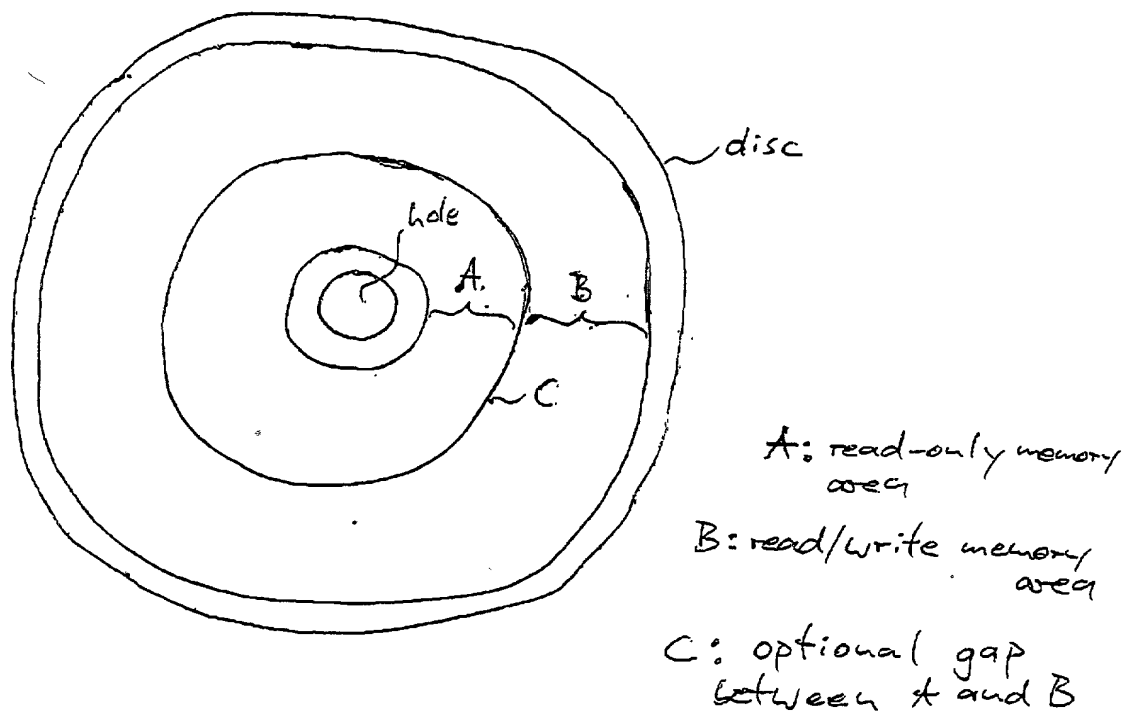 disc
hole
A.
B
C
A: read-only memory
area
B: read/write memory
area
C: optional gap
between A and B